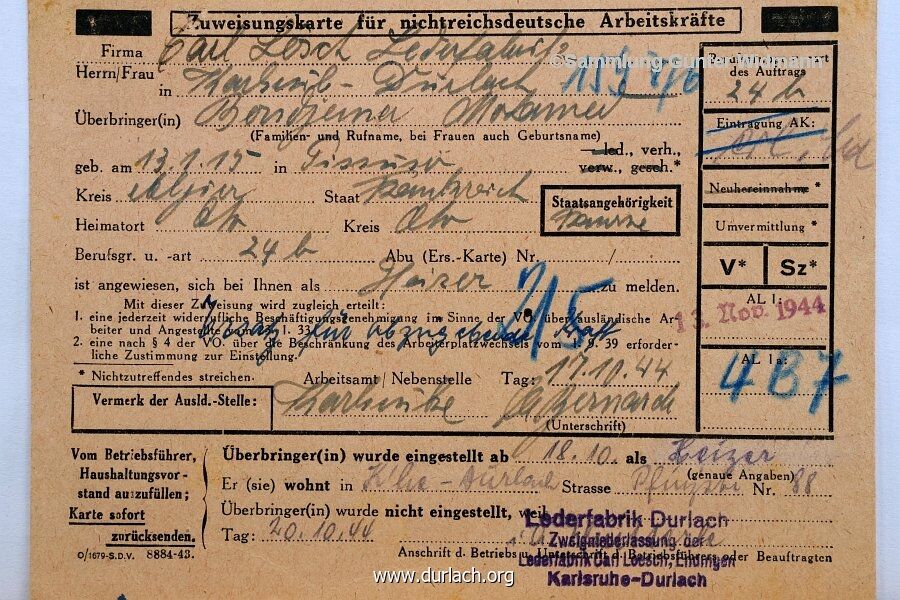 Zuweisungskarte für nichtreichsdeutsche Arbeitskräfte
©Sammlung Günter Widmann
Firma Carl Lesch Lederfabrik
Herrn/Frau
in Karlsruhe-Durlach
des Auftrags
24 b
Überbringer(in) Mohamed
(Familien- und Rufname, bei Frauen auch Geburtsname)
Eintragung AK:
geb. am 13.1.15 in
led., verh.,
verw., gesch.*
Kreis Algier Staat Frankreich
Staatsangehörigkeit
Neuhereinnahme *
Heimatort Kreis
Umvermittlung *
Berufsgr. u. -art 24 b Abu (Ers.-Karte) Nr. /
V* Sz*
ist angewiesen, sich bei Ihnen als Heizer zu melden.
Mit dieser Zuweisung wird zugleich erteilt:
1. eine jederzeit widerrufliche Beschäftigungsgenehmigung im Sinne der VO. über ausländische Ar-
beiter und Angestellte 1. 33
2. eine nach § 4 der VO. über die Beschränkung des Arbeitsplatzwechsels vom 1. 9. 39 erforder-
liche Zustimmung zur Einstellung.
Ersatz für abzugebende Kraft
215
AL 1:
13. Nov. 1944
AL 1a:
4B7
* Nichtzutreffendes streichen.
Arbeitsamt/Nebenstelle Tag: 17.10.44
Vermerk der Ausld.-Stelle:
Karlsruhe
(Unterschrift)
Vom Betriebsführer,
Haushaltungsvor-
stand auszufüllen;
Karte sofort
zurücksenden.
Überbringer(in) wurde eingestellt ab 18.10. als Heizer
(genaue Angaben)
Er (sie) wohnt in K'he-Durlach Strasse Pfinzstr. Nr. 88
Überbringer(in) wurde nicht eingestellt, weil
Tag: 20.10.44
Lederfabrik Durlach
Zweigniederlassung der
Lederfabrik Carl Loesch, Endingen
Karlsruhe-Durlach
Anschrift d. Betriebs u. Unterschrift d. Betriebsführers oder Beauftragten
O/1679-S.D.V. 8884-43.
www.durlach.org